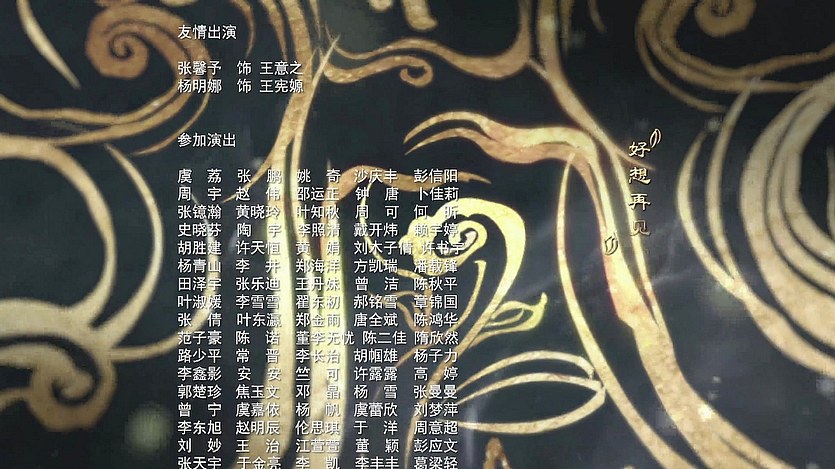 友情出演
张馨予 饰 王意之
杨明娜 饰 王宪嫄
参加演出
虞 荔 张 鹏 姚 奇 沙庆丰 彭信阳
周 宇 赵 伟 邵运正 钟 唐 卜佳莉
张镱瀚 黄晓玲 叶知秋 周 可 何 昕
史晓芬 陶 宇 李照清 戴开炜 赖宇婷
胡胜建 许天恒 黄 娟 刘木子倩 许书宇
杨青山 李 井 郑海洋 方凯瑞 潘载锋
田泽宇 张乐迪 王丹妹 曾 洁 陈秋平
叶淑媛 李雪雪 翟东初 郝铭雪 章锦国
张 倩 叶东瀛 郑金雨 唐全斌 陈鸿华
范子豪 陈 诺 董李无忧 陈二佳 隋欣然
路少平 常 晋 李长治 胡帼雄 杨子力
李鑫影 安 安 竺 可 许露露 高 婷
郭楚珍 焦玉文 邓 晶 杨 雪 张曼曼
曾 宁 虞嘉依 杨 帆 虞蕾欣 刘梦萍
李东旭 赵明辰 伦思琪 于 洋 周意超
刘 妙 王 治 江萱萱 董 颖 彭应文
张天宇 于金亮 李 凯 李丰丰 葛梁轻
好想再见